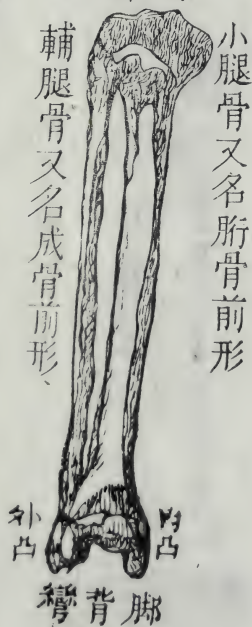 小腿骨又名胻骨前形
輔腿骨又名成骨前形、
內凸
外凸
脚背彎